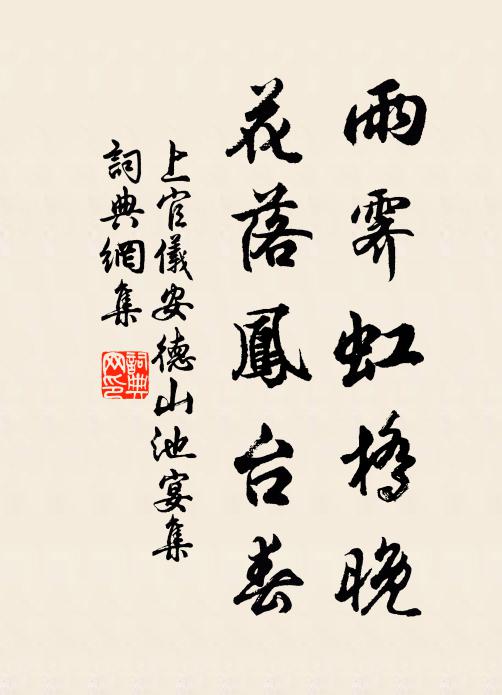 雨霽虹橋晚
花落鳳台春
上官儀安德山池宴集
詞典網集
詞典网印